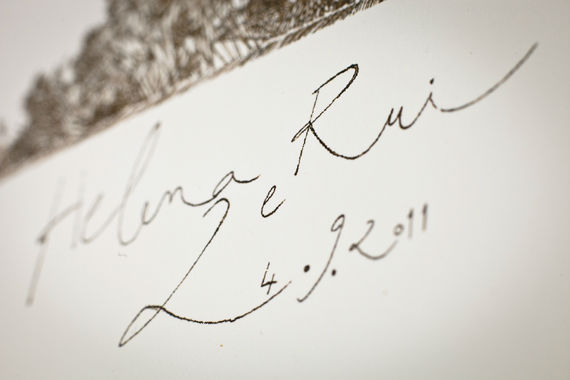 Helena e Rui
4.9.2011